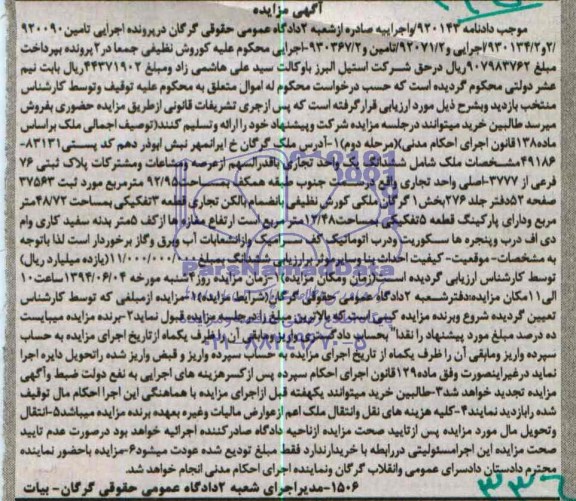 آگهی مزایده
موجب دادنامه ۹۲۰۱۴۳/واجراییه صادره ازشعبه ۲دادگاه عمومی حقوقی گرگان درپرونده اجرایی تامین۹۲۰۰۹۰
/۲و۹۲۰۱۳۴/۲/اجرایی و۹۲۰۷۱/۲/تامین و۹۳۰۳۶۷/۲-اجرایی محکوم علیه کوروش نظیفی جمعا در۲پرونده بپرداخت
مبلغ ۹۰۷۹۸۳۷۶۲ریال درحق شرکت استیل البرز باوکالت سید علی هاشمی زاد ومبلغ ۴۴۳۷۱۹۰۲ریال بابت نیم
عشر دولتی محکوم گردیده است که حسب درخواست محکوم له اموال متعلق به محکوم علیه توقیف وتوسط کارشناس
منتخب بازدید وبشرح ذیل مورد ارزیابی قرارگرفته است که پس ازجری تشریفات قانونی ازطریق مزایده حضوری بفروش
میرسد طالبین خرید میتوانند درجلسه مزایده شرکت وپیشنهاد خود را ارائه وتسلیم کنند(توصیف اجمالی ملک براساس
ماده۱۳۸قانون اجرای احکام مدنی)(مرحله دوم)۱-آدرس ملک گرگان خ ایرانمهر نبش ابوذر دهم کد پستی۸۳۱۳۱-
۴۹۱۸۶مشخصات ملک شامل ششدانگ یک واحد تجاری باقدرالسهم ازعرصه ومشاعات ومشترکات پلاک ثبتی ۷۶
فرعی از ۳۷۷۷-اصلی واحد تجاری واقع درسمت جنوب طبقه همکف بمساحت۹۲/۹۵ مترمربع مورد ثبت ۳۷۵۶۳
صفحه ۵۲دفتر جلد ۲۷۶بخش۱ گرگان ملکی کورش نظیفی بانضمام بالکن تجاری قطعه ۳تفکیکی بمساحت۴۸/۷۲متر
مربع ودارای پارکینگ قطعه ۵تفکیکی بمساحت۱۲/۴۸متر مربع است ارتفاع مغازه ها ازکف ۵متر بدنه سفید کاری وام
دی اف درب وپنجره ها سکوریت ودرب اتوماتیک کف سرامیک وازانشعابات آب وبرق وگاز برخوردار است لذا باتوجه
به مشخصات- موقعیت- کیفیت احداث بنا وسایرموثر برارزیابی ششدانگ بمبلغ ۱۱/۰۰۰/۰۰۰/۰۰۰(یازده میلیارد ریال)
توسط کارشناس ارزیابی گردیده است(زمان ومکان مزایده)۱-زمان مزایده روز۴شنبه مورخه ۱۳۹۴/۰۶/۰۴ ساعت۱۰
الی۱۱مکان مزایده:دفترشعبه ۲دادگاه عمومی حقوقی گرگان(شرایط مزایده)۱-مزایده ازمبلغی که توسط کارشناس
تعیین گردیده شروع وبرنده مزایده کسی است که بالاترین مبلغ را درجلسه مزایده قبول نماید۲-برنده مزایده میبایست
ده درصد مبلغ مورد پیشنهاد را نقدا" بحساب دادگستری واریز ومابقی آن را ظرف یکماه ازتاریخ اجرای مزایده به حساب
سپرده واریز ومابقی آن را ظرف یکماه از تاریخ اجرای مزایده به حساب سپرده واریز و قبض واریز شده راتحویل دایره اجرا
نماید درغیراینصورت وفق ماده۱۲۹قانون اجرای احکام سپرده پس ازکسرهزینه های اجرایی به نفع دولت ضبط وآگهی
مزایده تجدید خواهد شد۳-طالبین خرید میتوانند یکهفته قبل ازاجرای مزایده با هماهنگی این اجرا احکام مال توقیف
شده رابازدید نمایند۴-کلیه هزینه های نقل وانتقال ملک اعم ازعوارض مالیات وغیره بعهده برنده مزایده میباشد۵-انتقال
وتحویل مال مورد مزایده پس ازتایید صحت مزایده ازناحیه دادگاه صادرکننده اجرائیه خواهد بود درصورت عدم تایید
صحت مزایده این اجرامسئولیتی دررابطه با خریدارندارد فقط مبلغ تودیع شده عودت میشود۶-مزایده باحضور نماینده
محترم دادستان دادسرای عمومی وانقلاب گرگان ونماینده اجرای احکام مدنی انجام خواهد شد.
۱۵۰۶-مدیراجرای شعبه ۲دادگاه عمومی حقوقی گرگان- بیات
ParsNamadData
۰۲۱-۸۸۳۴۹۶۷۰-۵
۳۳۶